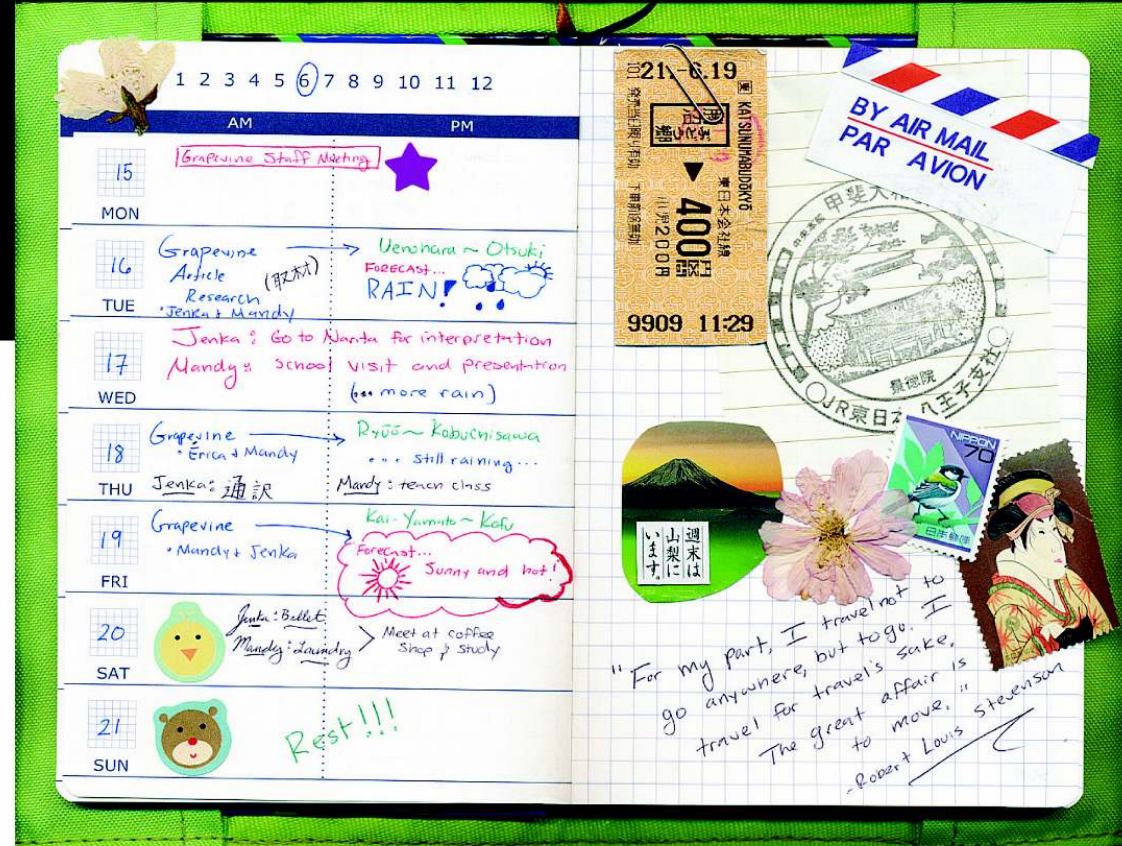 1 2 3 4 5 6 7 8 9 10 11 12
AM PM
15
MON
Grapevine Staff Meeting
16
TUE
Grapevine
Article
Research
(取材)
・Jenka + Mandy
Uenohara ~ Otsuki
FORECAST...
RAIN!
17
WED
Jenka: Go to Narita for interpretation
Mandy: School visit and presentation
(... more rain)
18
THU
Grapevine
・Erica + Mandy
Ryūō ~ Kobuchisawa
... still raining...
Jenka: 通訳
Mandy: teach class
19
FRI
Grapevine
・Mandy + Jenka
Kai-Yamato ~ Kofu
Forecast...
Sunny and hot!
20
SAT
Jenka: Ballet
Mandy: Laundry
Meet at coffee
Shop & Study
21
SUN
Rest!!!
21.-6.19
KATSUNUMABUDŌKYŌ
東日本会社線
400円区間
小児200円
発売当日限り有効
下車前途無効
9909 11:29
BY AIR MAIL
PAR AVION
景徳院
JR東日本八王子支社
週末は
山梨に
います。
NIPPON
70
日本郵便
"For my part, I travel not to
go anywhere, but to go. I
travel for travel's sake.
The great affair is
to move."
-Robert Louis Stevenson